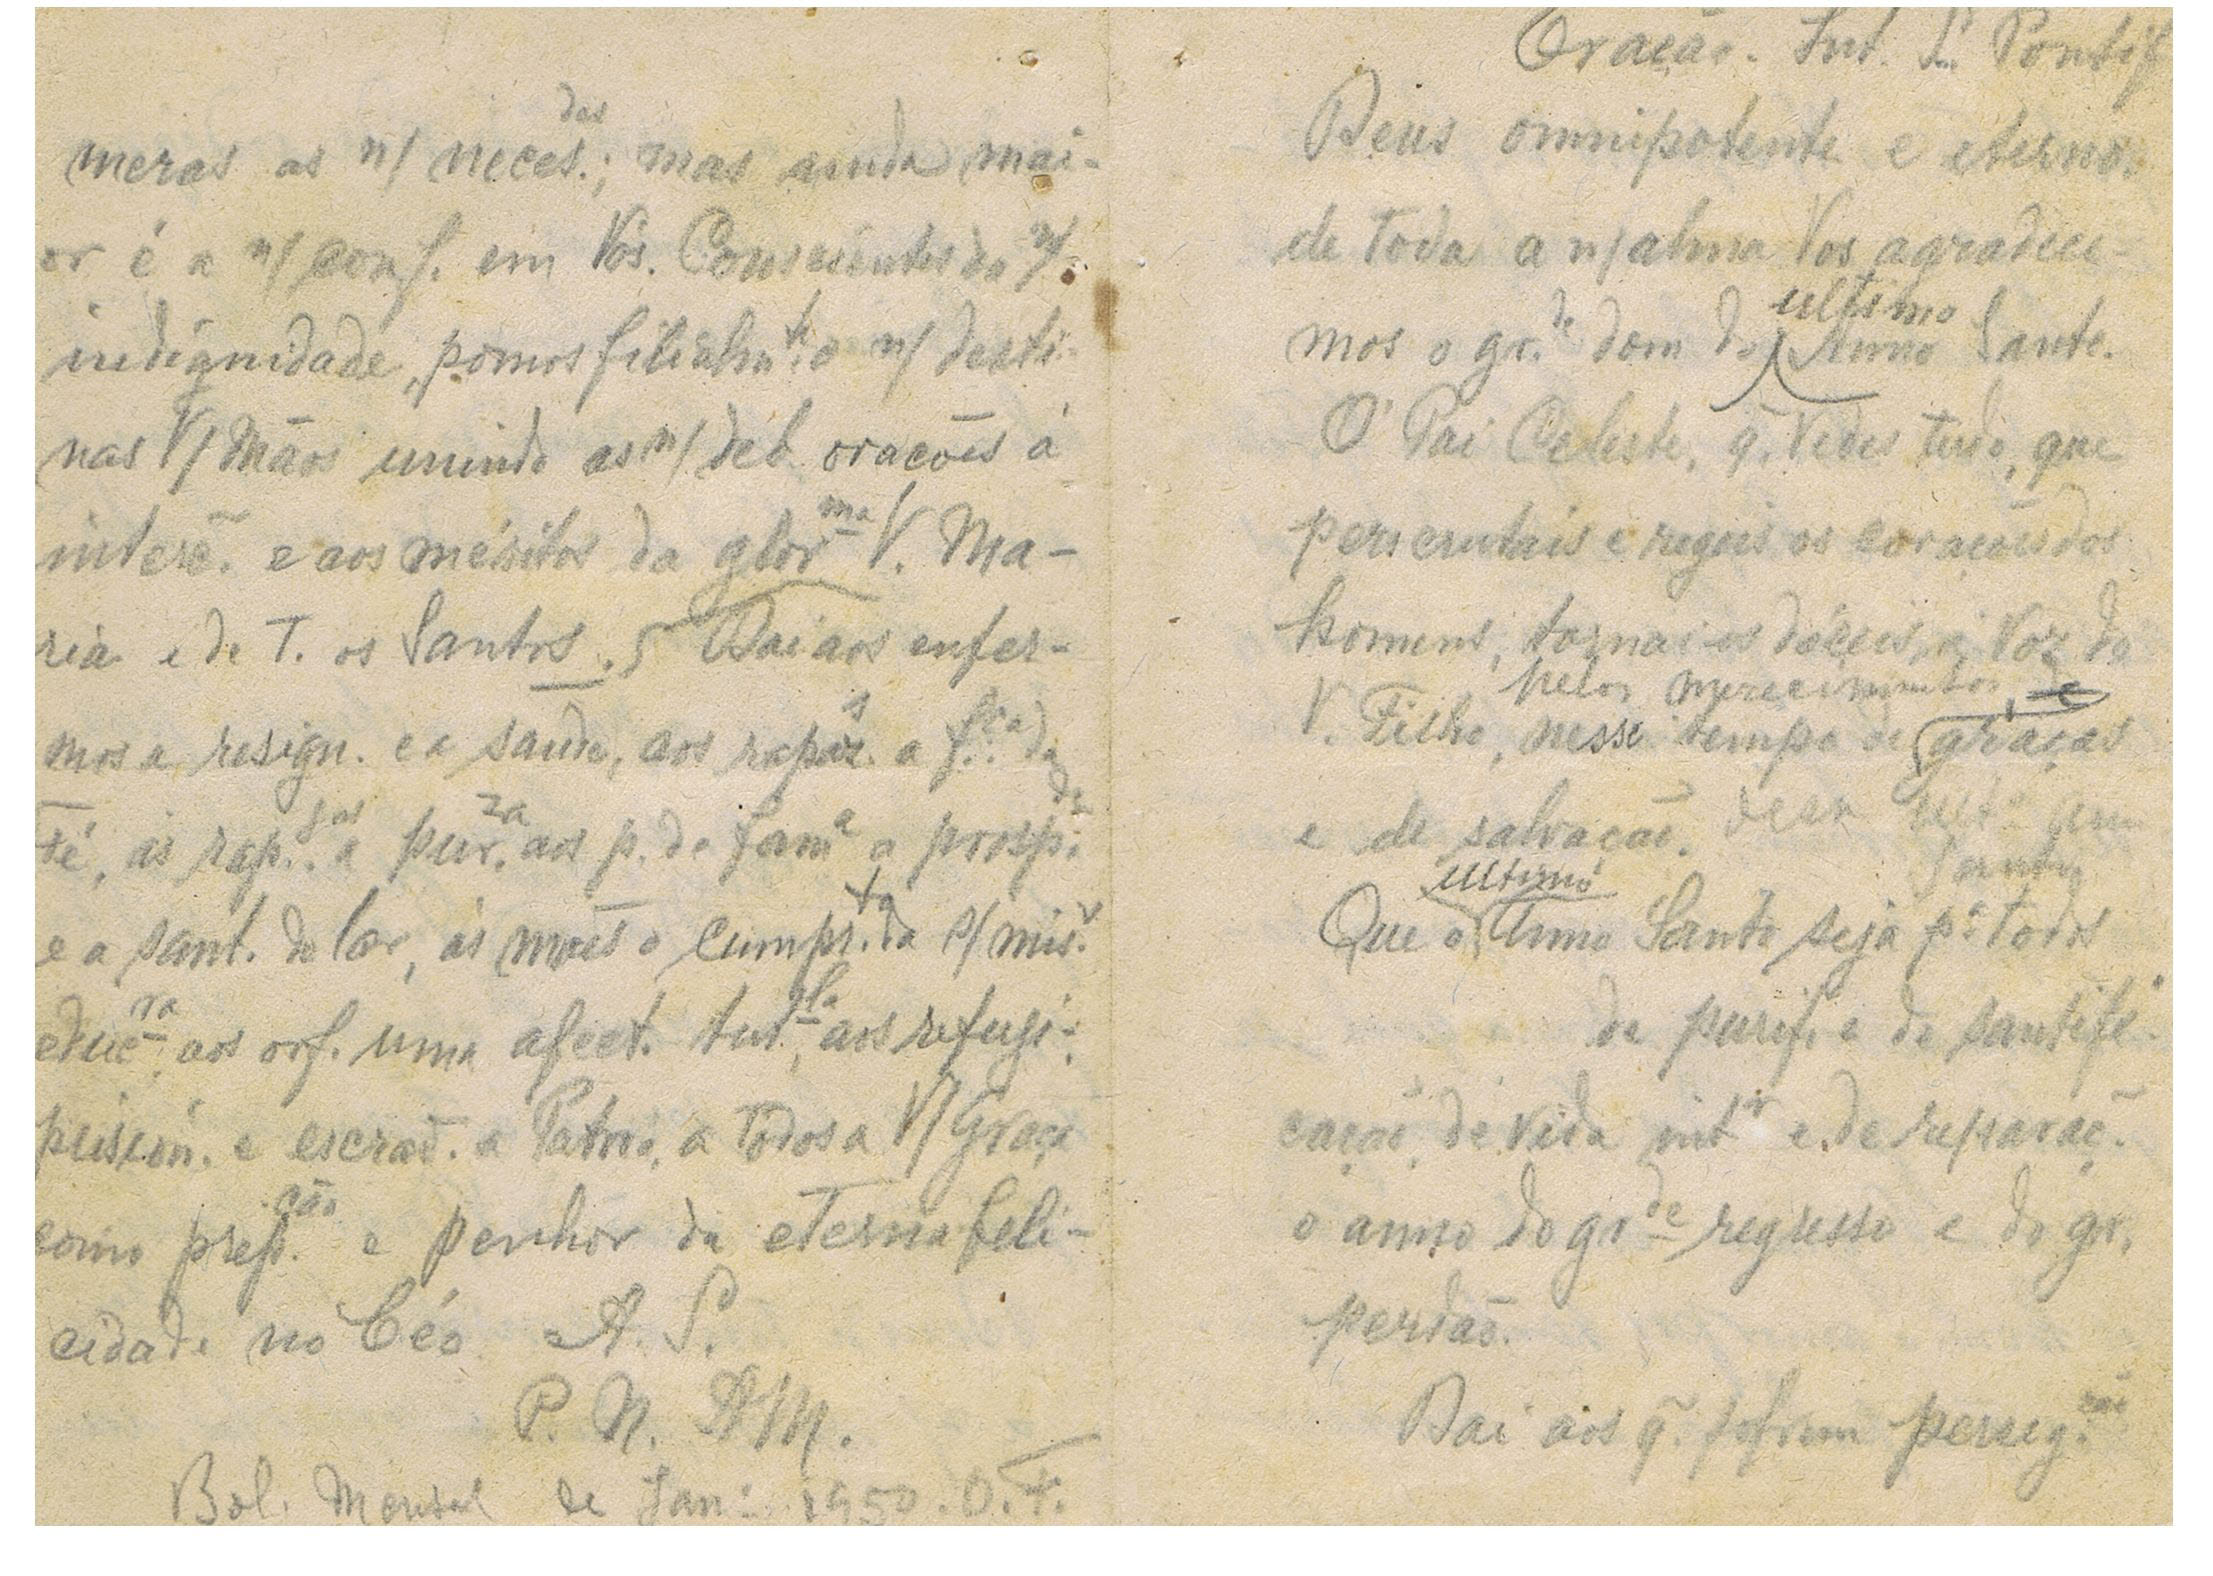 meras as n/ neces.des; mas ainda mai-
or é a n/ conf. em Vós. Conscientes da n/
indignidade, pomos filialm.te o n/ desti.
nas V/ Mãos unindo as n/ deb. orações á
intercẽ. e aos méritos da glor.ma V. Ma-
ria e de T. os Santos. Dai aos enfer-
mos a resign. e a saude, aos rapaz.s a f.ça da
Fé, ás rap.gas a pur.za aos p. de fam.a a prosp.de
e a sant. do lar, ás mães o cumpr.to da s/ mis.
educ.ra aos orf. uma afect. tut.la, aos refugi.
prision. e escrav. a Patria, a todos a V/ Graça
como prep.ção e penhor da eterna feli-
cidade no Céo A. S.
P. N. AM.
Bol. Mensal de Jan.º 1950. O. F.
Oração. Int. S. Pontif
Deus omnipotente e eterno,
de toda a n/ alma Vos agradece-
mos o gr.de dom do ultimo Anno Santo.
O' Pai Celeste, q̃. vedes tudo, que
perscrutais e regeis os corações dos
homens, tornai-os dóceis, á Voz do
pelos merecimentos de
V. Filho, nesse tempo de graças
e de salvação. Santo
Que o ultimo Anno Santo seja p.a todos
de purif. e de santifi-
cação, de vida int.r e de reparaç.
o anno do gr.de regresso e do gr.
perdão.
Dai aos q̃. sofrem perseg.ção